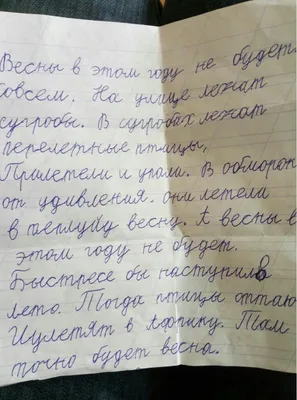 Весны в этом году не будет
совсем. На улице лежат
сугробы. В сугробах лежат
перелетные птицы,
Прилетели и упали. В обморок
от удивления. они летела
в теплуйу весну. А весны в
этом году не будет.
Быстресе бы наступило
лето. Тогда птицы оттаю
И улетят в Африку. Там
точно будет весна.